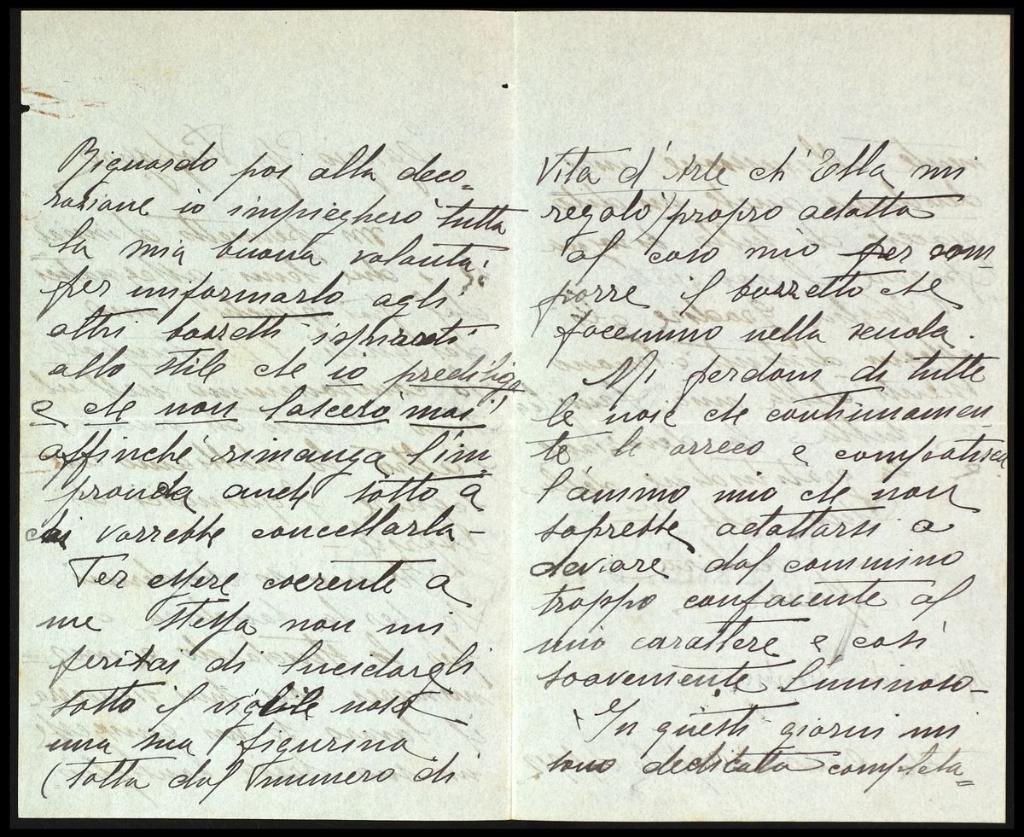 Riguardo poi alla deco-
razione io impiegherò tutta
la mia buona volontà
per uniformarlo agli
altri bozzetti ispirati
allo stile che io prediligo
e che non lascerò mai!
affinché rimanga l'im
pronta anche sotto a
chi vorrebbe cancellarla-
Per essere coerente a
me stessa non mi
peritai di lucidargli
sotto il vigile naso
una sua figurina
(tolta dal numero di
Vita d'Arte ch'Ella mi
regalò) propro adatta
al caso mio per com-
porre il bozzetto che
facemmo nella scuola.
Mi perdoni di tutte
le noie che continuamen-
te le arreco e compatisca
l'animo mio che non
saprebbe adattarsi a
deviare dal cammino
troppo confacente al
mio carattere e così
soavemente luminoso-
In questi giorni mi
sono dedicata completa=